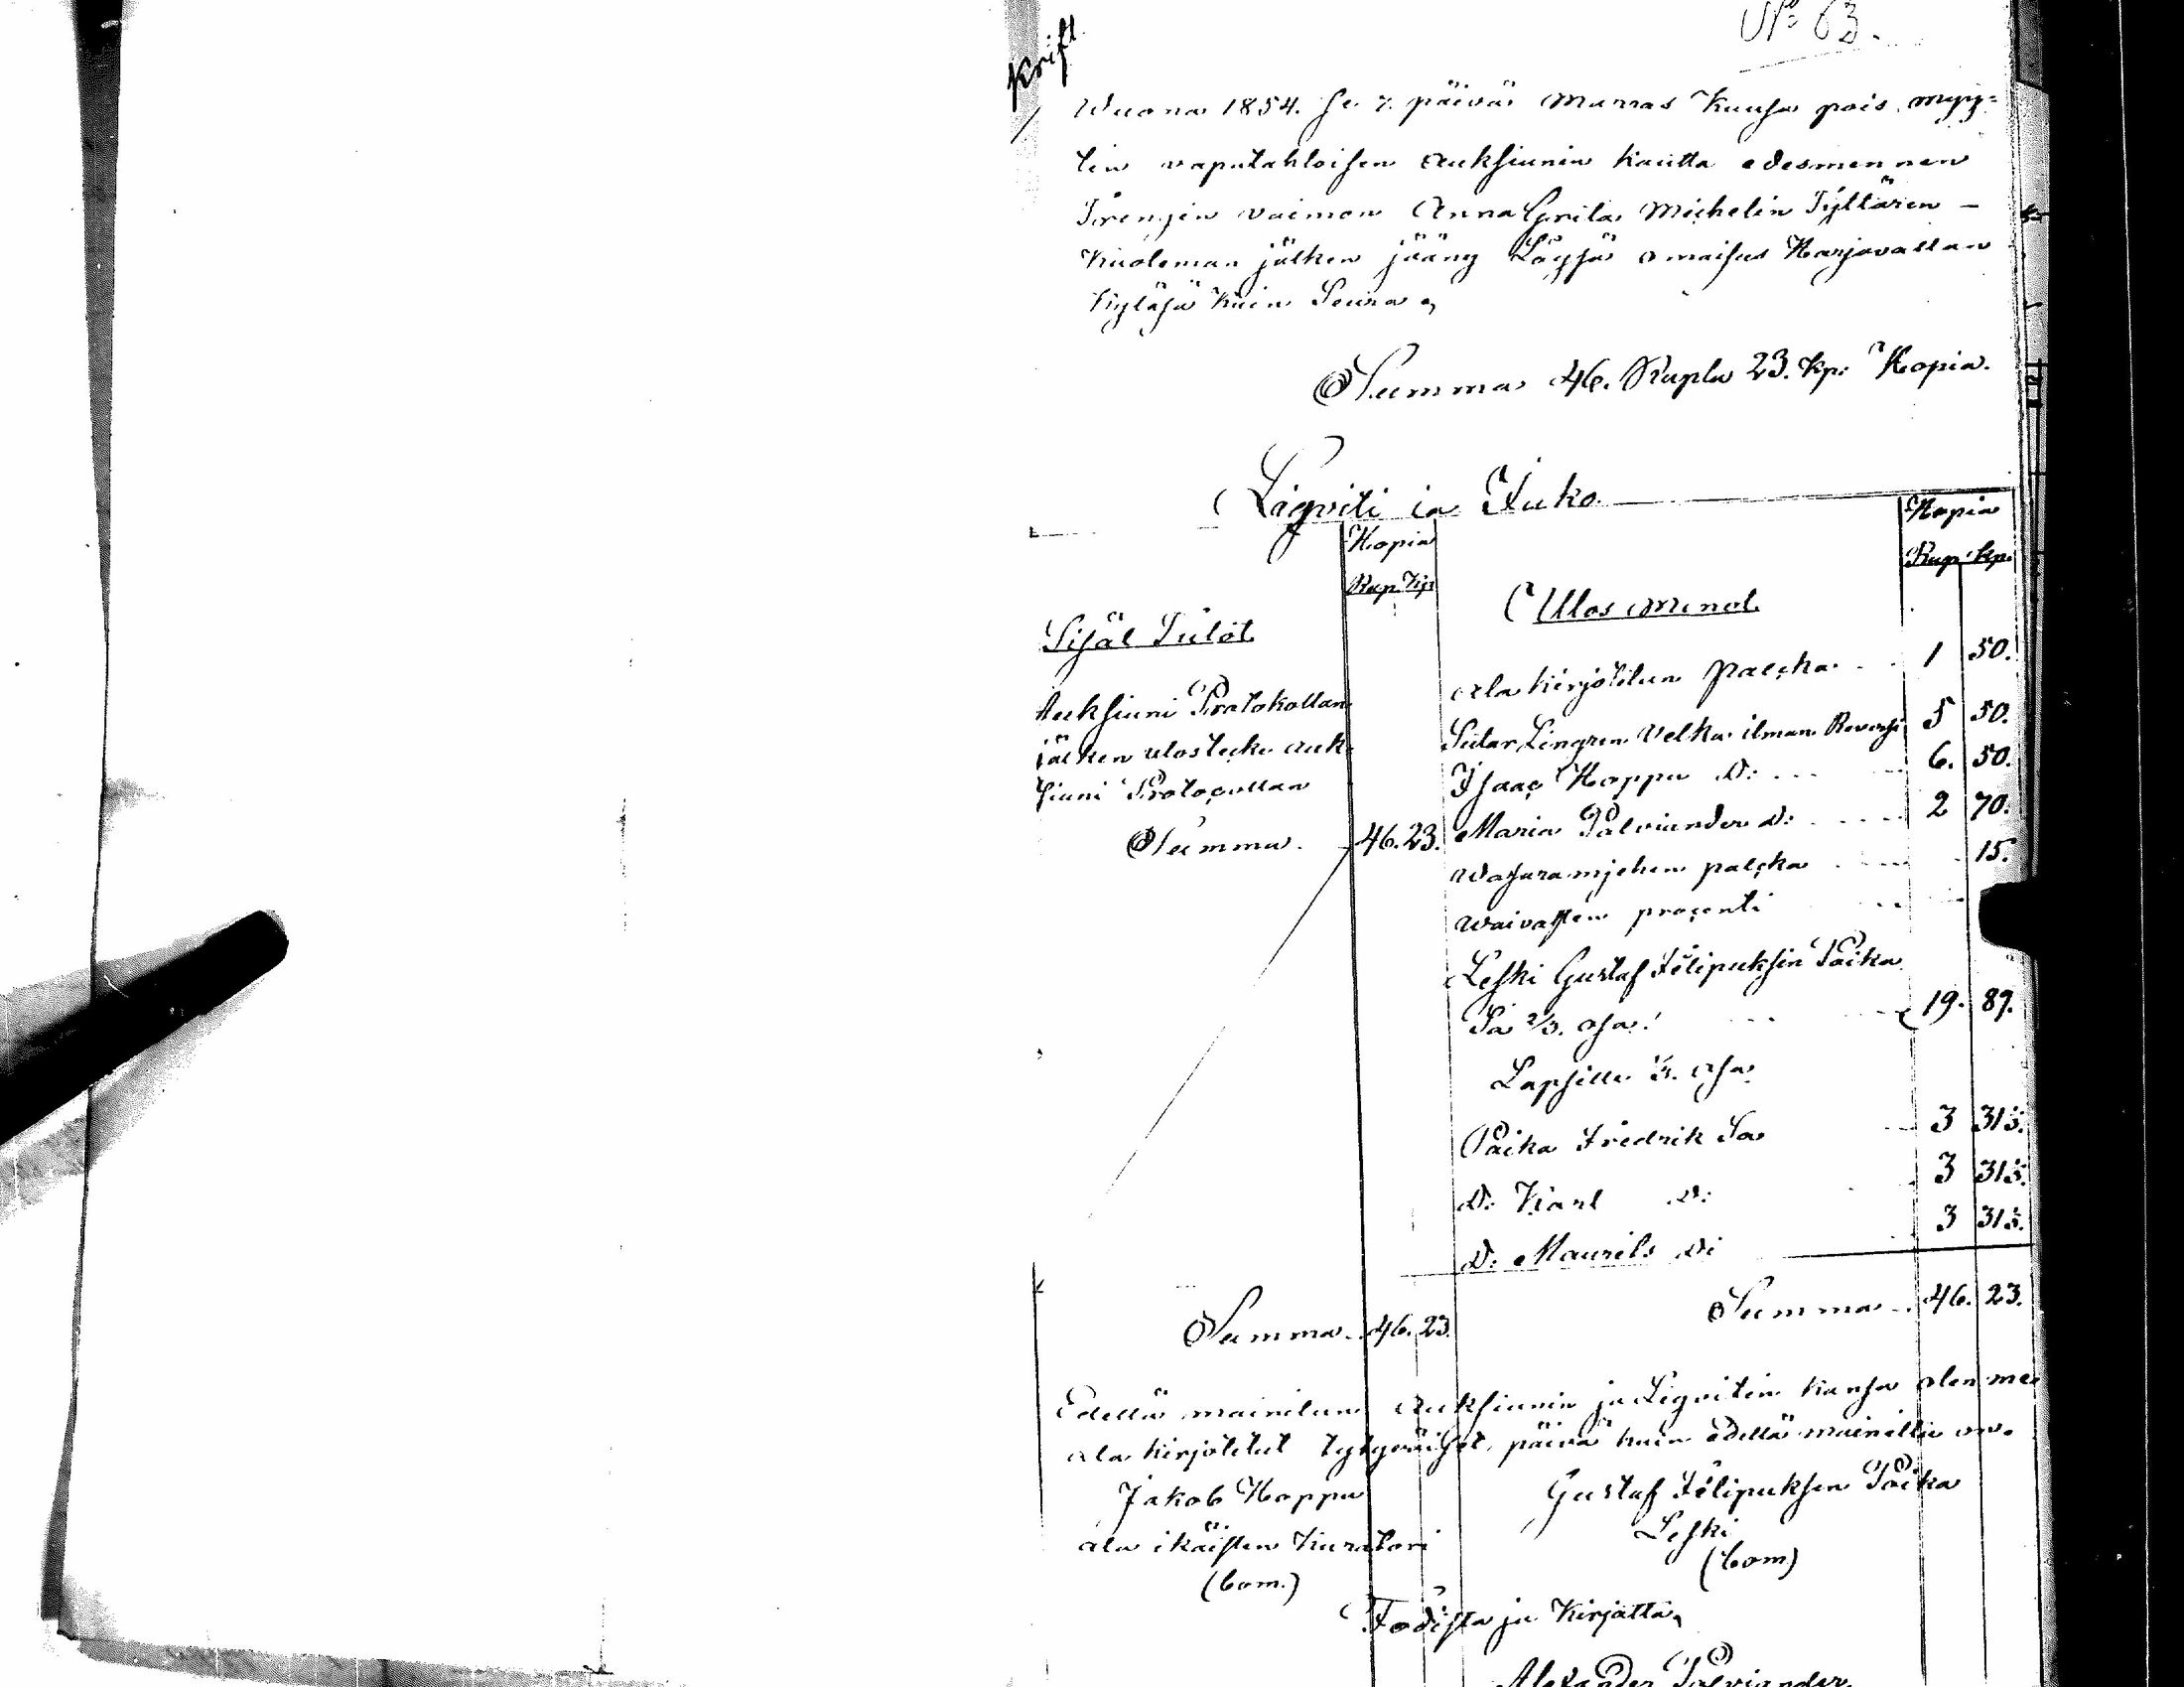 No 63.
krift
Wuona 1854. se 7. päivä Marras Kuusa pois myy=
tin vaputahtoisen Auksiunin kautta edesmennen
Trengin vaimon Anna Grita Michelin Tyttären -
Kuoleman jälken jääny Löysä omaisus Harjavallan
Kyläsä kuin Seura,
Summa 46. Rupla 23. kp: Hopia.
Liqviti ia Juko
Hopia
Rup. kp.
Hopia
Rup. kp.
Sisäl Tulot
Ulos Menot
Auksiuni Protokollan
jälken ulosteeke auk-
siuni Protocollan
Summa. 46. 23.
Ala kirjotetun Palcka . . 1 50.
Sutar Lingren Velka ilman Reversi 5 50.
Isaac Hoppu D: . . . 6. 50.
Maria Palviander D: . . . . 2 70.
Wasaramjehen palcka . . . . 15.
Waivasten procenti . . .
Leski Gustaf Filipuksin Poika
Sa 2/3. osa: . . . 19. 89.
Lapsille 1/3. Osa
Poika Fredrik Sa . . 3 315.
D: Karl D: . 3 315.
D: Maurits D: . 3 315.
Summa . . 46. 23.
Summa . . 46. 23.
Edellä mainitun Auksiunin ja Liqvitin kansa olen me
ala kirjotetut tytyväiset, päivä kuin edellä mainittu on.
Jakob Hoppu
ala ikäisten Kuratori
(bom.)
Gustaf Filipuksen Poika
Leski
(bom)
Todista ja Kirjatta,
Alexander Palviander